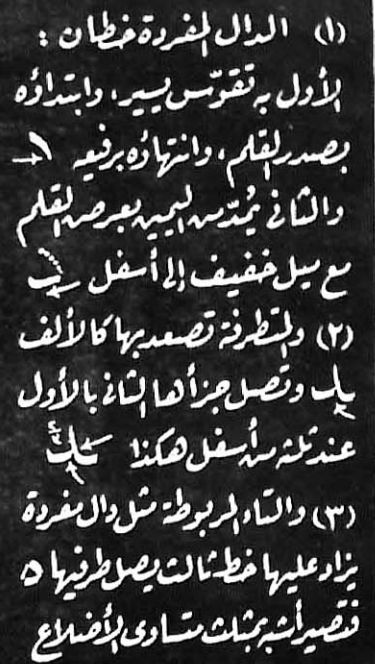 (١) الدال المفردة خطان :
الأول به تقوّس يسير، وابتداؤه
بصدر القلم، وانتهاؤه برفيعه
والثاني يُمدّ من اليمين بعرض القلم
مع ميل خفيف إلى أسفل
(٢) والمتطرفة تصعد بها كالألف
وتصل جزأها الثاني بالأول
عند ثلثه من أسفل هكذا
(٣) والتاء المربوطة مثل دال مفردة
يزاد عليها خط ثالث يصل طرفيها ٥
فتصير أشبه بمثلث متساوى الأضلاع